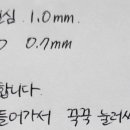 심 1.0mm.
0.7mm
합니다.
들어가서 꾹꾹 눌러써